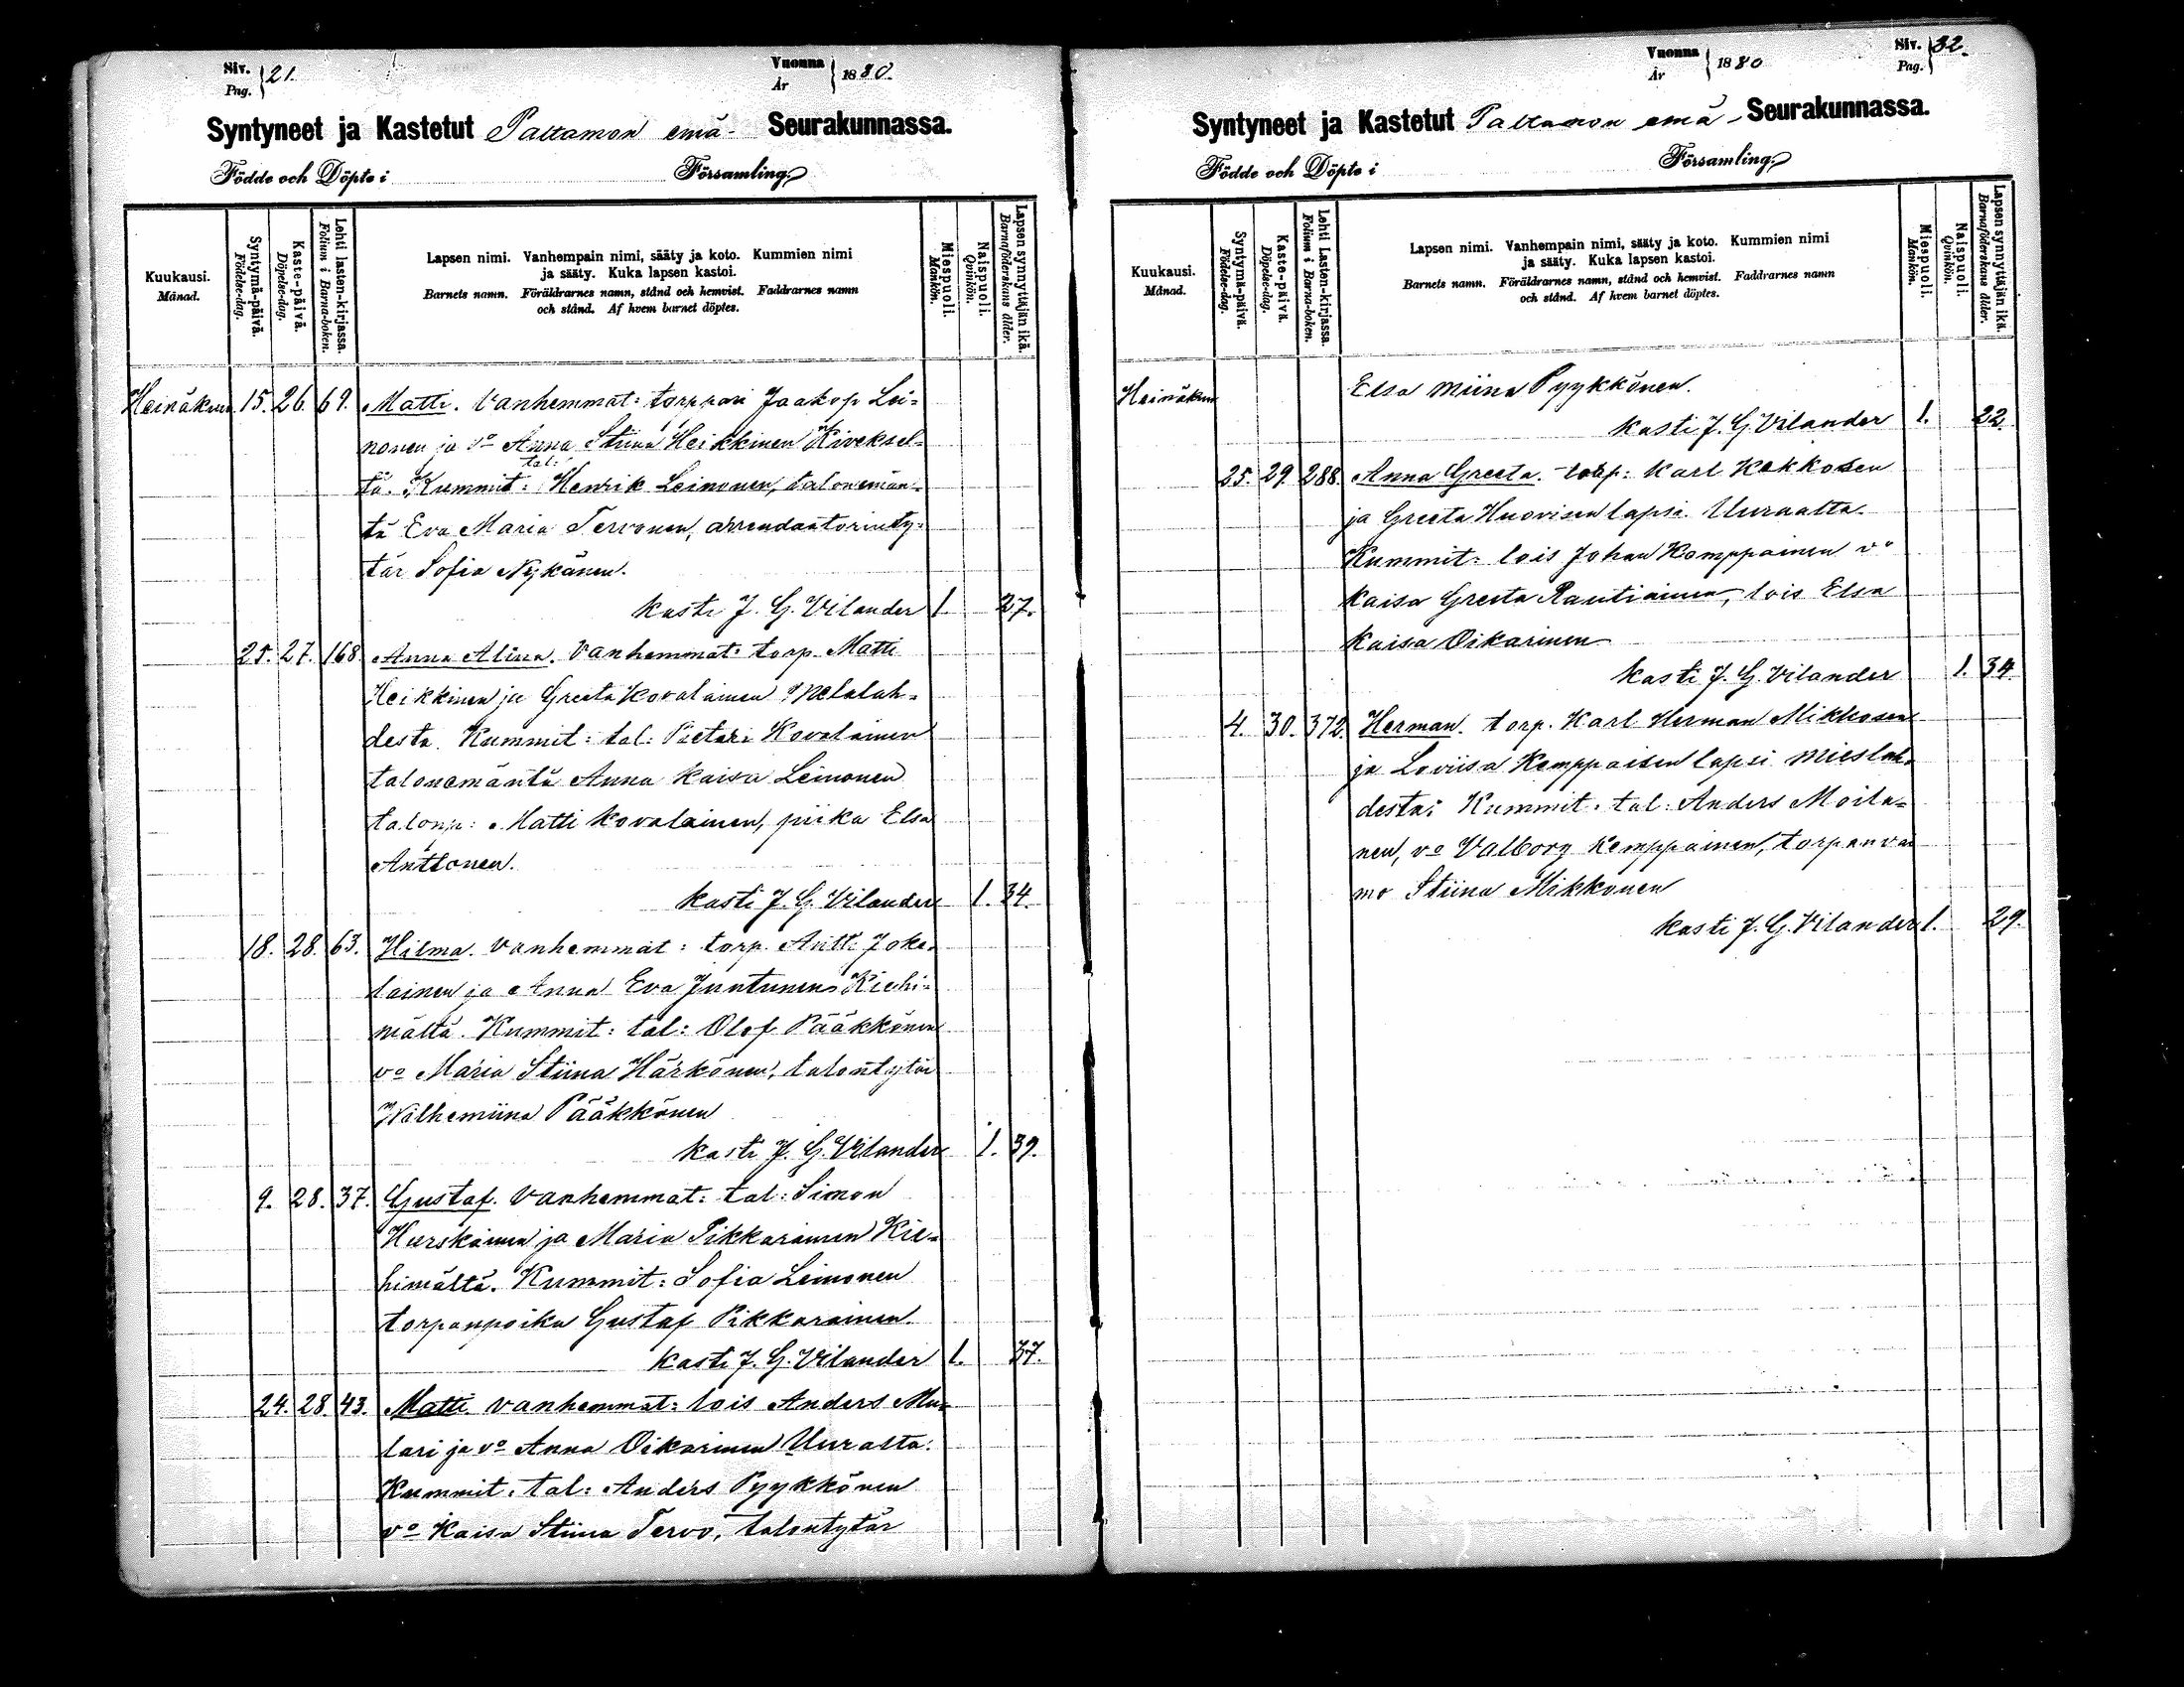 Siv. Pag. 21.
Vuonna År 1880.
Syntyneet ja Kastetut Paltamon emä- Seurakunnassa.
Födde och Döpte i Församling
Kuukausi. Månad.
Syntymä-päivä. Födelse-dag.
Kaste-päivä. Döpelse-dag.
Lehti lasten-kirjassa. Folium i Barna-boken.
Lapsen nimi. Vanhempain nimi, sääty ja koto. Kummien nimi
ja sääty. Kuka lapsen kastoi.
Barnets namn. Föräldrarnes namn, stånd och hemvist. Faddrarnes namn
och stånd. Af hvem barnet döptes.
Miespuoli. Mankön.
Naispuoli. Qvinkön.
Lapsen synnyttäjän ikä. Barnaföderskans ålder.
Heinäkuu 15. 26. 69. Matti. Vanhemmat: torppari Jaakop Lei-
nonen ja vo Anna Stiina Heikkinen Kiveksel-
tal:
tä. Kummit: Henrik Leinonen, talonemän-
tä Eva Maria Tervonen, arrendaatorinty-
tär Sofia Nykänen.
kasti J. G. Vilander 1 27.
25. 27. 168 Anna Alina. Vanhemmat: torp. Matti
Heikkinen ja Greeta Kovalainen Melalah-
desta. Kummit: tal: Pietari Kovalainen
talonemäntä Anna Kaisa Leinonen
talonp: Matti Kovalainen, piika Elsa
Anttonen.
kasti J. G. Vilander 1. 34.
18. 28. 63. Hilma. Vanhemmat: torp. Antti Joke-
lainen ja Anna Eva Juntunen Kiehi-
mältä. Kummit: tal: Olof Pääkkönen
vo Maria Stiina Härkönen, talontytär
Wilhemiina Pääkkönen
kasti J. G. Vilander 1. 39.
9. 28. 37. Gustaf. Vanhemmat: tal: Simon
Hurskainen ja Maria Pikkarainen Kie-
himältä. Kummit: Sofia Leinonen
torpanpoika Gustaf Pikkarainen.
kasti J. G. Vilander 1. 37.
24. 28. 43. Matti. vanhemmat: lois Anders Mu-
lari ja vo Anna Oikarinen Uuralta.
Kummit: tal: Anders Pyykkönen
vo Kaisa Stiina Tervo, talontytär
Vuonna År 1880
Siv. Pag. 32.
Syntyneet ja Kastetut Paltamon emä- Seurakunnassa.
Födde och Döpte i Församling
Kuukausi. Månad.
Syntymä-päivä. Födelse-dag.
Kaste-päivä. Döpelse-dag.
Lehti Lasten-kirjassa. Folium i Barna-boken.
Lapsen nimi. Vanhempain nimi, sääty ja koto. Kummien nimi
ja sääty. Kuka lapsen kastoi.
Barnets namn. Föräldrarnes namn, stånd och hemvist. Faddrarnes namn
och stånd. Af hvem barnet döptes.
Miespuoli. Mankön.
Naispuoli. Qvinkön.
Lapsen synnyttäjän ikä. Barnaföderskans ålder.
Heinäkuu Elsa Miina Pyykkönen.
kasti J. G. Vilander 1. 22.
25. 29. 288. Anna Greeta. torp: Karl Kekkosen
ja Greeta Huovisen lapsi Uuraalta.
Kummit: lois Johan Komppainen vo
Kaisa Greeta Rautiainen, lois Elsa
Kaisa Oikarinen
kasti J. G. Vilander 1. 34.
4. 30. 372. Herman. torp. Karl Herman Mikkosen
ja Loviisa Kemppaisen lapsi Mieslah-
desta; Kummit: tal: Anders Moila-
nen, vo Valborg Kemppainen, torpanvai
mo Stiina Mikkonen
kasti J. G. Vilander 1. 29.